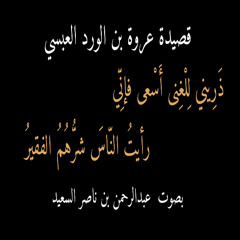 قصيدة عروة بن الورد العبسي
ذَرِيني لِلْغِنى أَسْعى فإنِّي
رأيتُ النّاسَ شرُّهُمُ الفقيرُ
بصوت عبدالرحمن بن ناصر السعيد